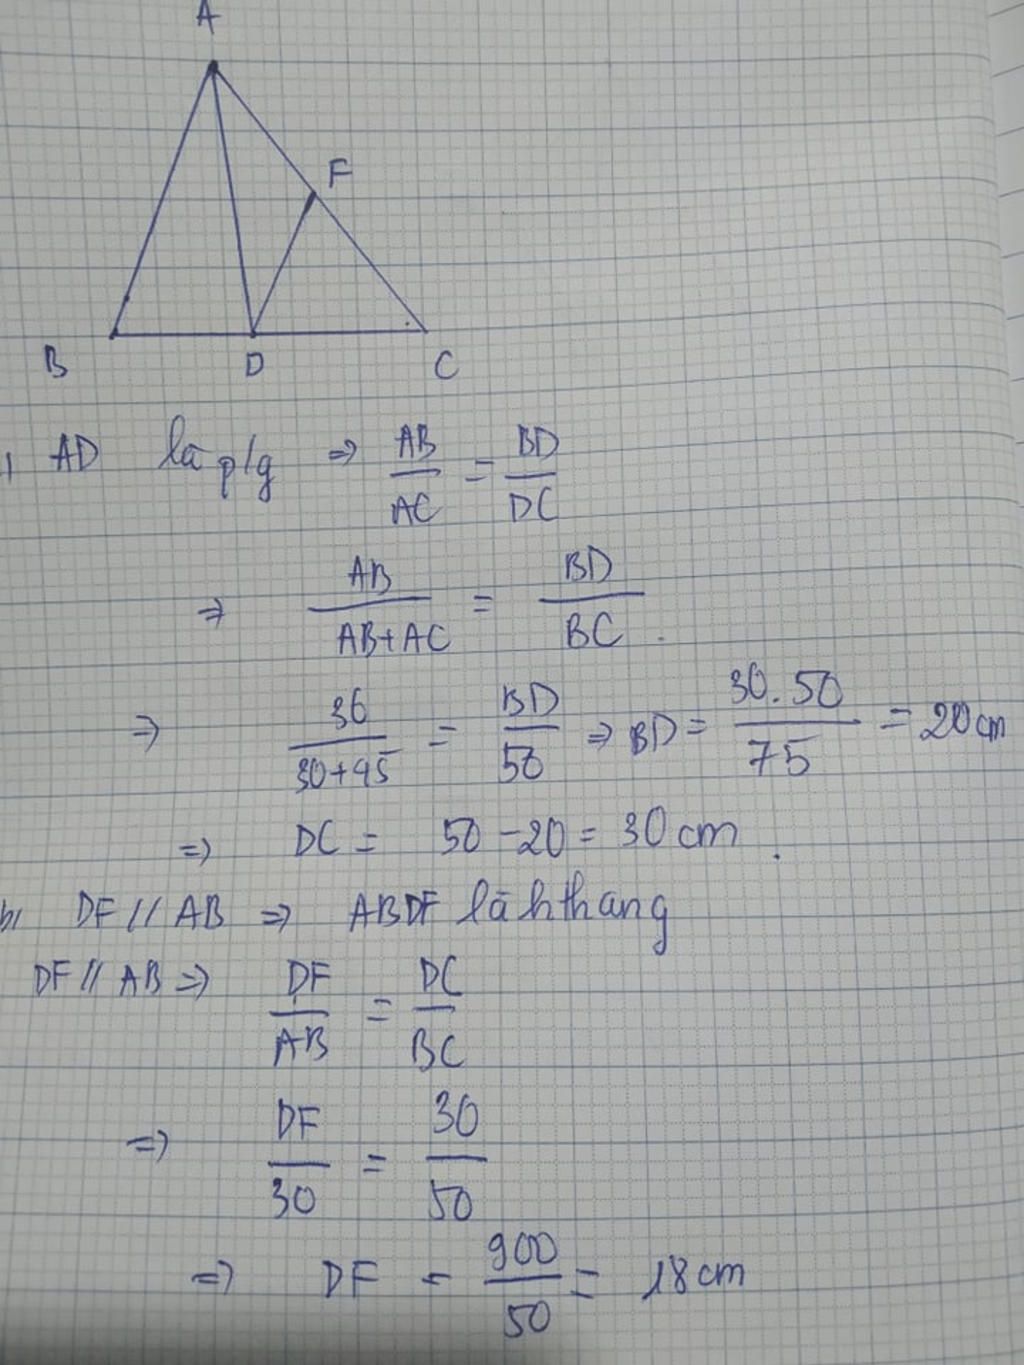 A
F
B D C
a, AD là p/g ⇒ AB/AC = BD/DC
⇒ AB/(AB+AC) = BD/BC.
⇒ 30/(30+45) = BD/50 ⇒ BD = 30.50/75 = 20cm
⇒ DC = 50 - 20 = 30cm.
b, DF // AB ⇒ ABDF là hthang
DF // AB ⇒ DF/AB = DC/BC
⇒ DF/30 = 30/50
⇒ DF = 900/50 = 18cm